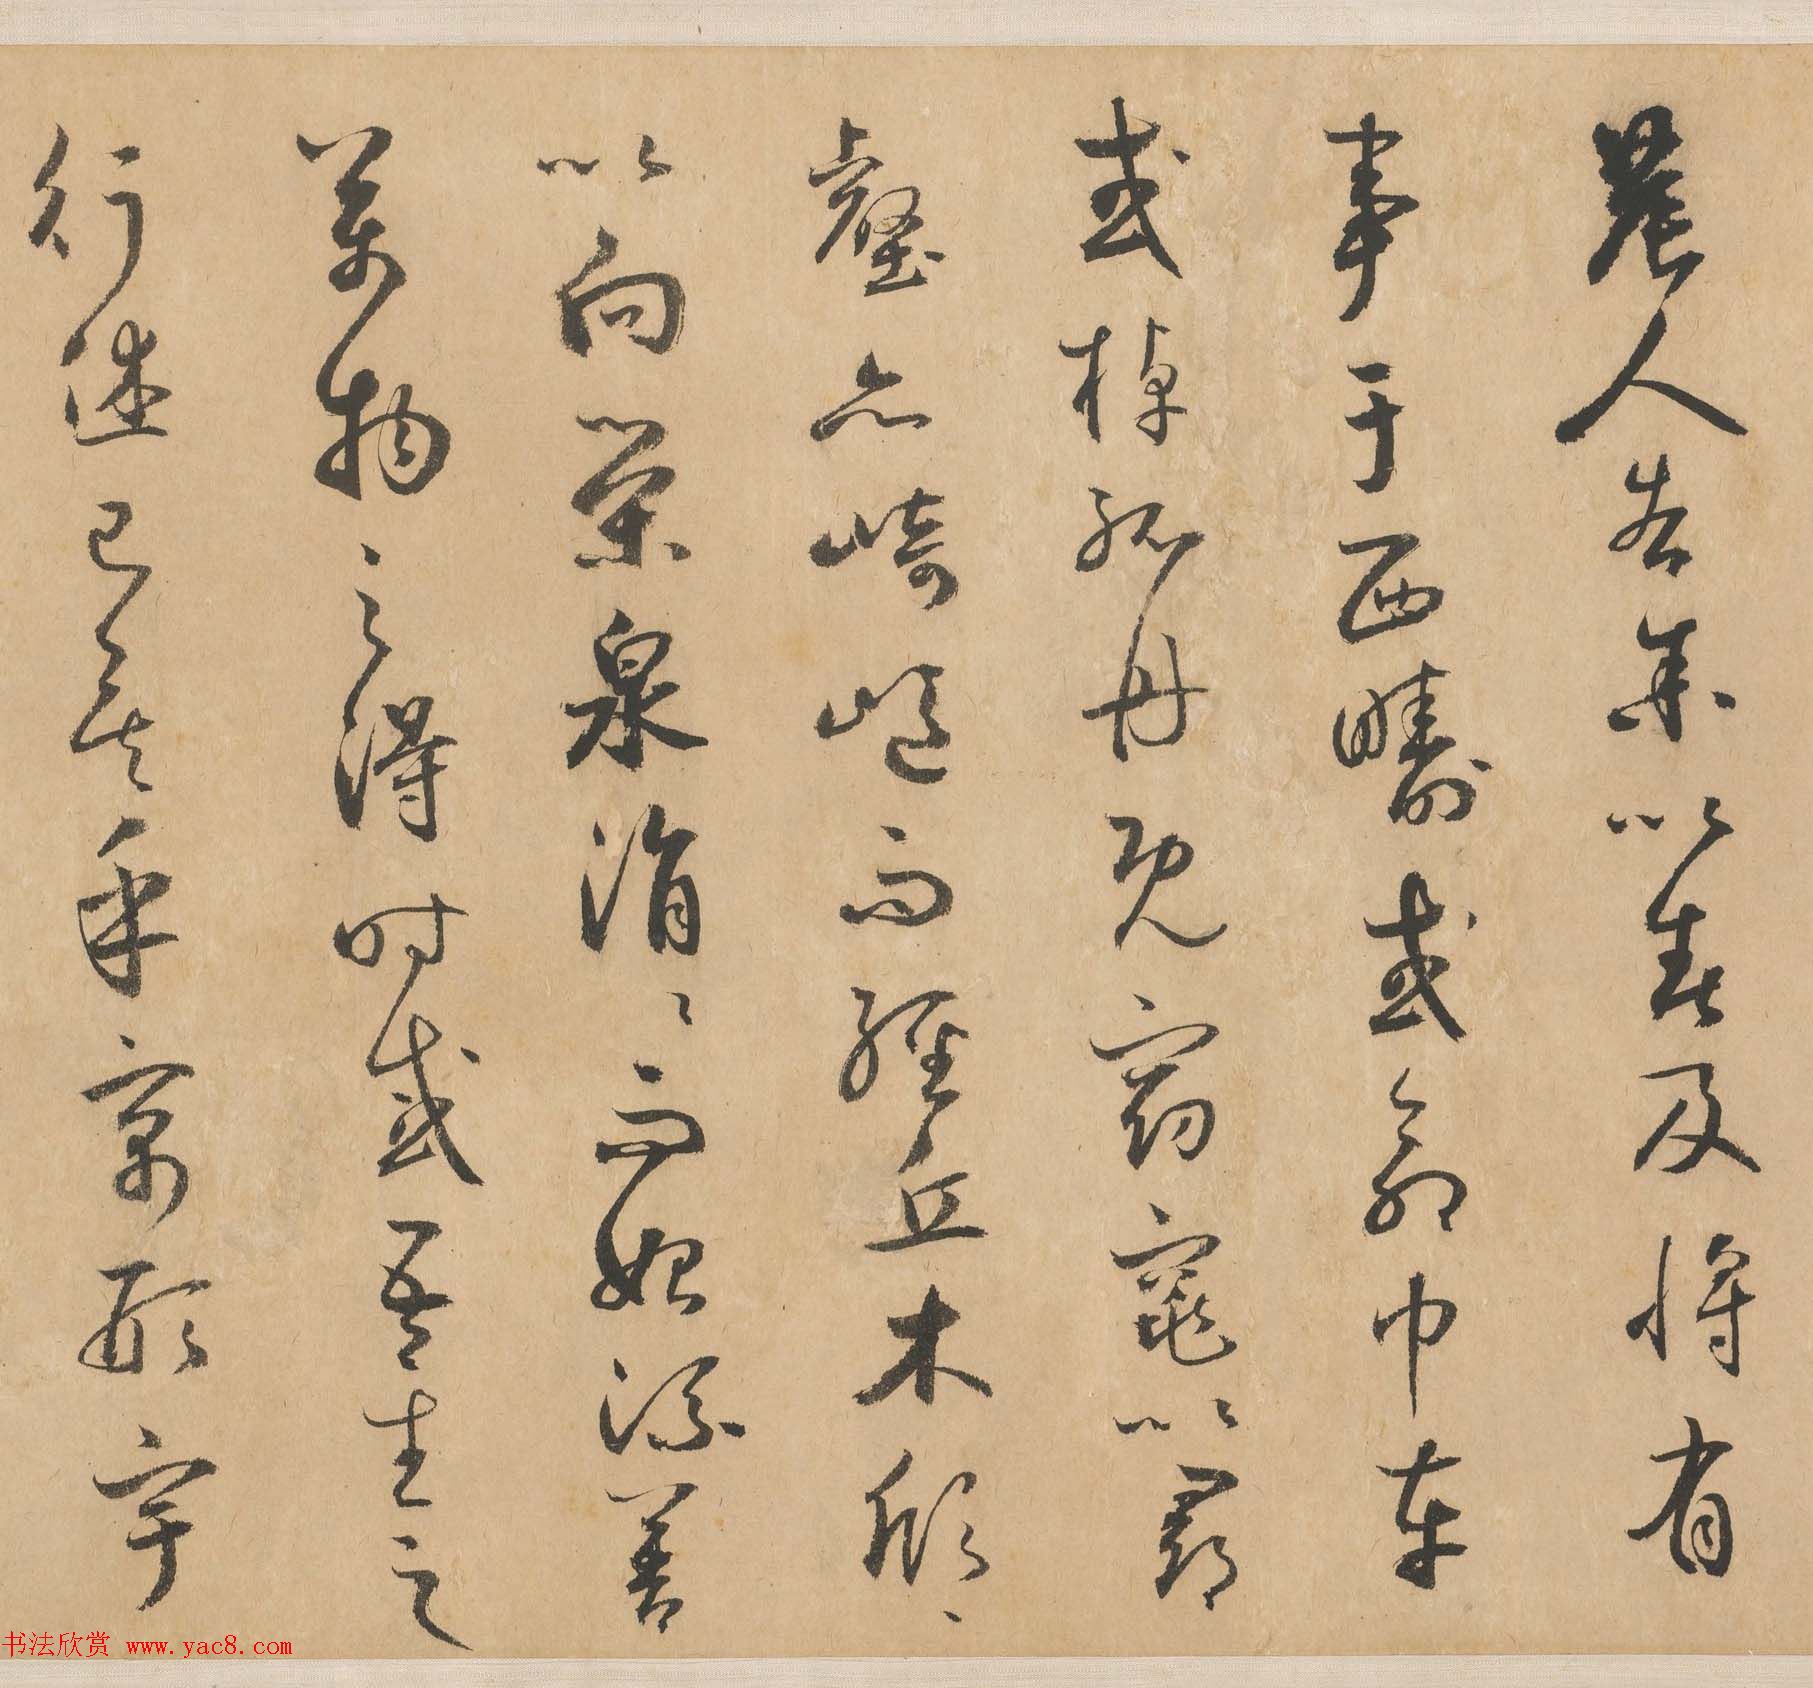 農人告余以春及將有
事于西疇或命巾車
或棹孤舟既窈窕以尋
壑亦崎嶇而經丘木欣々
以向榮泉涓々而始流善
萬物之得時感吾生之
行已矣乎寓形宇
书法欣赏 www.yac8.com